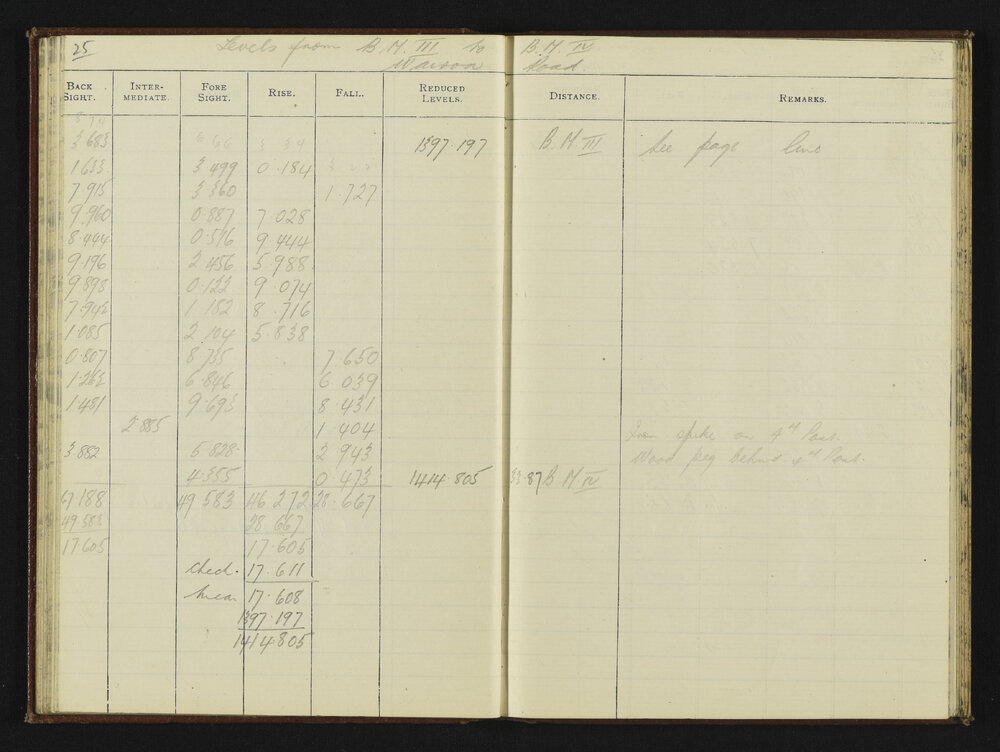 25 Levels from B.M. III to B.M. IV
Wairoa Road
BACK SIGHT. INTER-MEDIATE. FORE SIGHT. RISE. FALL. REDUCED LEVELS. DISTANCE. REMARKS.
3 683 1397.197 B.M. III See page
1 633 3 499 0.184
7.915 3 360 1.727
9.960 0.887 7 028
8.444 0.516 9.444
9.196 2 456 5.988
9 898 0.122 9 074
7.942 1 182 8.716
1.085 2 104 5.838
0.807 8 735 7 650
1.262 6 846 6 039
1.481 9.693 8.431
2.885 1.404 Iron spike on 4th Post.
3.882 5 828 2 943 Wood peg behind 4th Post.
4.355 0 473 1414.805 33.87 B M IV
67.188 49 583 46.272 28.667
49.583 28.667
17.605 17.605
check. 17.611
mean 17.608
1397.197
1414.805